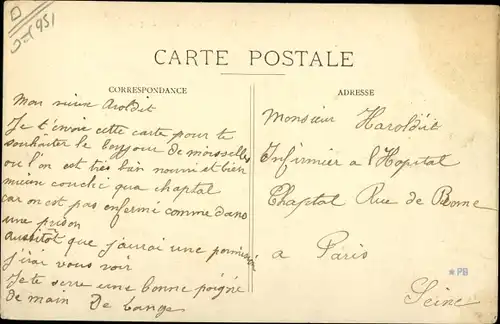 CARTE POSTALE
CORRESPONDANCE
Mon vieux Aroldit
Je t'envoie cette carte pour te
souhaiter le bonjour de
ou l'on est très bien nourri et bien
mieux couché qua chaptal
car on est pas enfermé comme dans
une prison
aussitôt que j'aurai une permission
j'irai vous voir
Je te serre une bonne poigné
de main De
ADRESSE
Monsieur Haroldit
Infirmier a l'Hopital
Chaptal Rue de Rome
a Paris
Seine
*PB